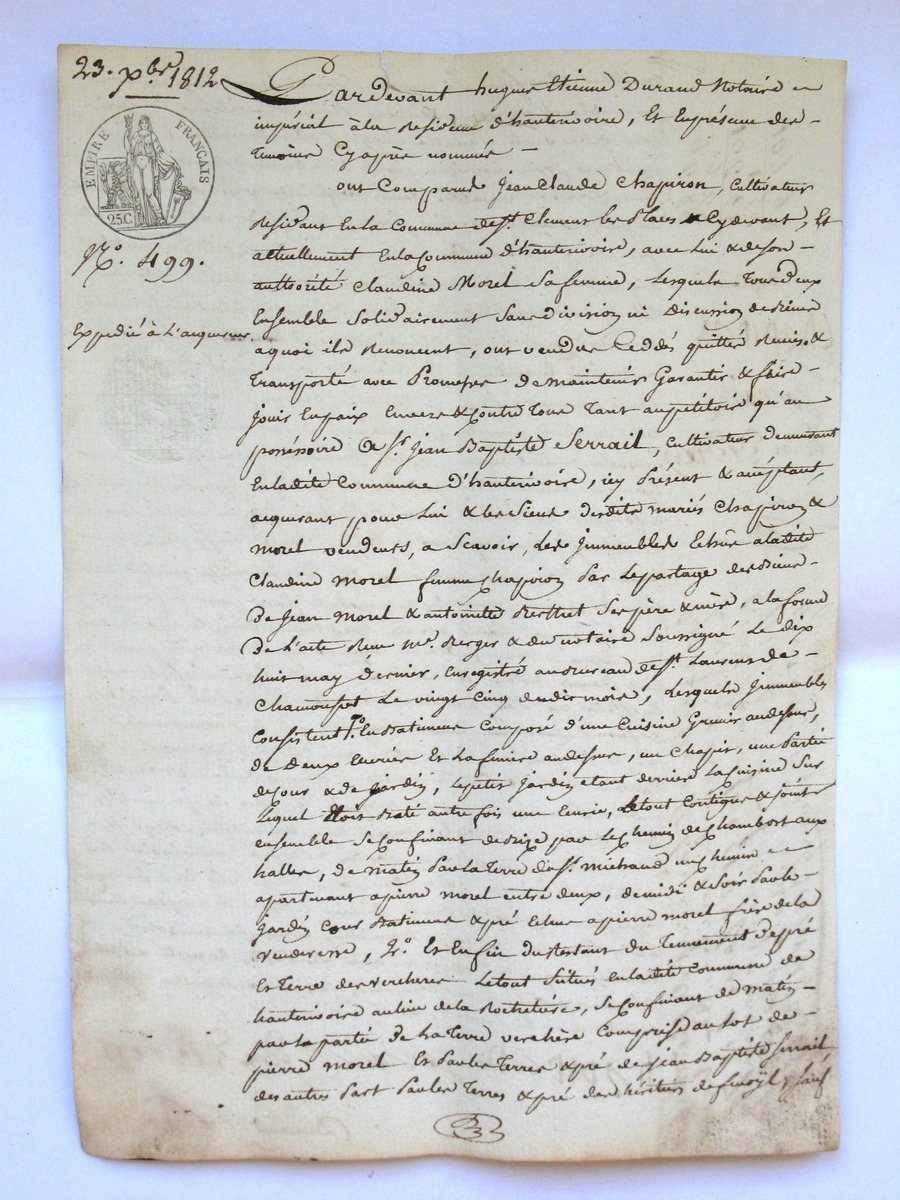 23. xbre 1812
EMPIRE FRANÇAIS
25 C.
N.º 499.
Expedié à l'acquereur.
Pardevant hugues Etienne Durand Notaire
impérial à la Residence d'hauterivoire, Et En présence des
Temoins Cy après nommés
ont Comparus Jean Claude Chapiron, Cultivateur
Residant En la Commune de St. Clement les places Cy devant, Et
actuellement En la Commune d'hauterivoire, avec Lui & de son
authorité Claudine Morel Sa femme, Lesquels Tous deux
Ensemble Solidairement Sans division ni discussion de
a quoi ils Renoncent, ont vendus Cédés quitté Remis &
Transporté avec Promesse de maintenir Garantir & faire
jouir En paix Envers & Contre Tous Tant au petitoire qu'au
possessoire a Sr. Jean Baptiste Serrail, Cultivateur demeurant
En ladite Commune d'hauterivoire, icy Présent & acceptant,
acquerant pour Lui & les Siens desdits mariés Chapiron &
morel vendeurs, a Scavoir, Les Immeubles Echus a ladite
Claudine morel femme Chapiron Par Le partage des Biens
De Jean morel & antoinette Berthet Ses père & mère, a la forme
De L'acte Reçu Me. Berger & du notaire Soussigné Le dix
huit may dernier, Enregistré au Bureau de St. Laurent de
Chamousset Le vingt Cinq dudit mois, Lesquels Immeubles
Consistent 1º. En Batiments Composé d'une Cuisine Grenier au dessus,
de Deux Ecuries Et La feniere au dessus, un Chapit, une Partie
de jour & de jardin, Le petit jardin Etant derriere La Cuisine Sur
Lequel Etoit autre fois une Ecurie, Le tout Contigus & joints
ensemble Se Confinant de Bize par Le Chemin de Chambost aux
halles, de matin Par la Terre de Sr. michaud un Chemin
apartenant a pierre morel entre deux, de midi & Soir Par le
jardin Cour Batiments & pré Echus a pierre morel frère de la
venderesse, 2º. Et Enfin du Restant du Tennement de pré
Et Terre des vercheres Le tout Situés En ladite Commune de
hauterivoire au lieu de la Rochetière, Se Confinant de matin
par la partie De La Terre verchère Comprise au Lot de
pierre morel Et Par les Terres & pré de Jean Baptiste Serrail,
des autres Part Par les Terres & pré des héritiers de Sauf